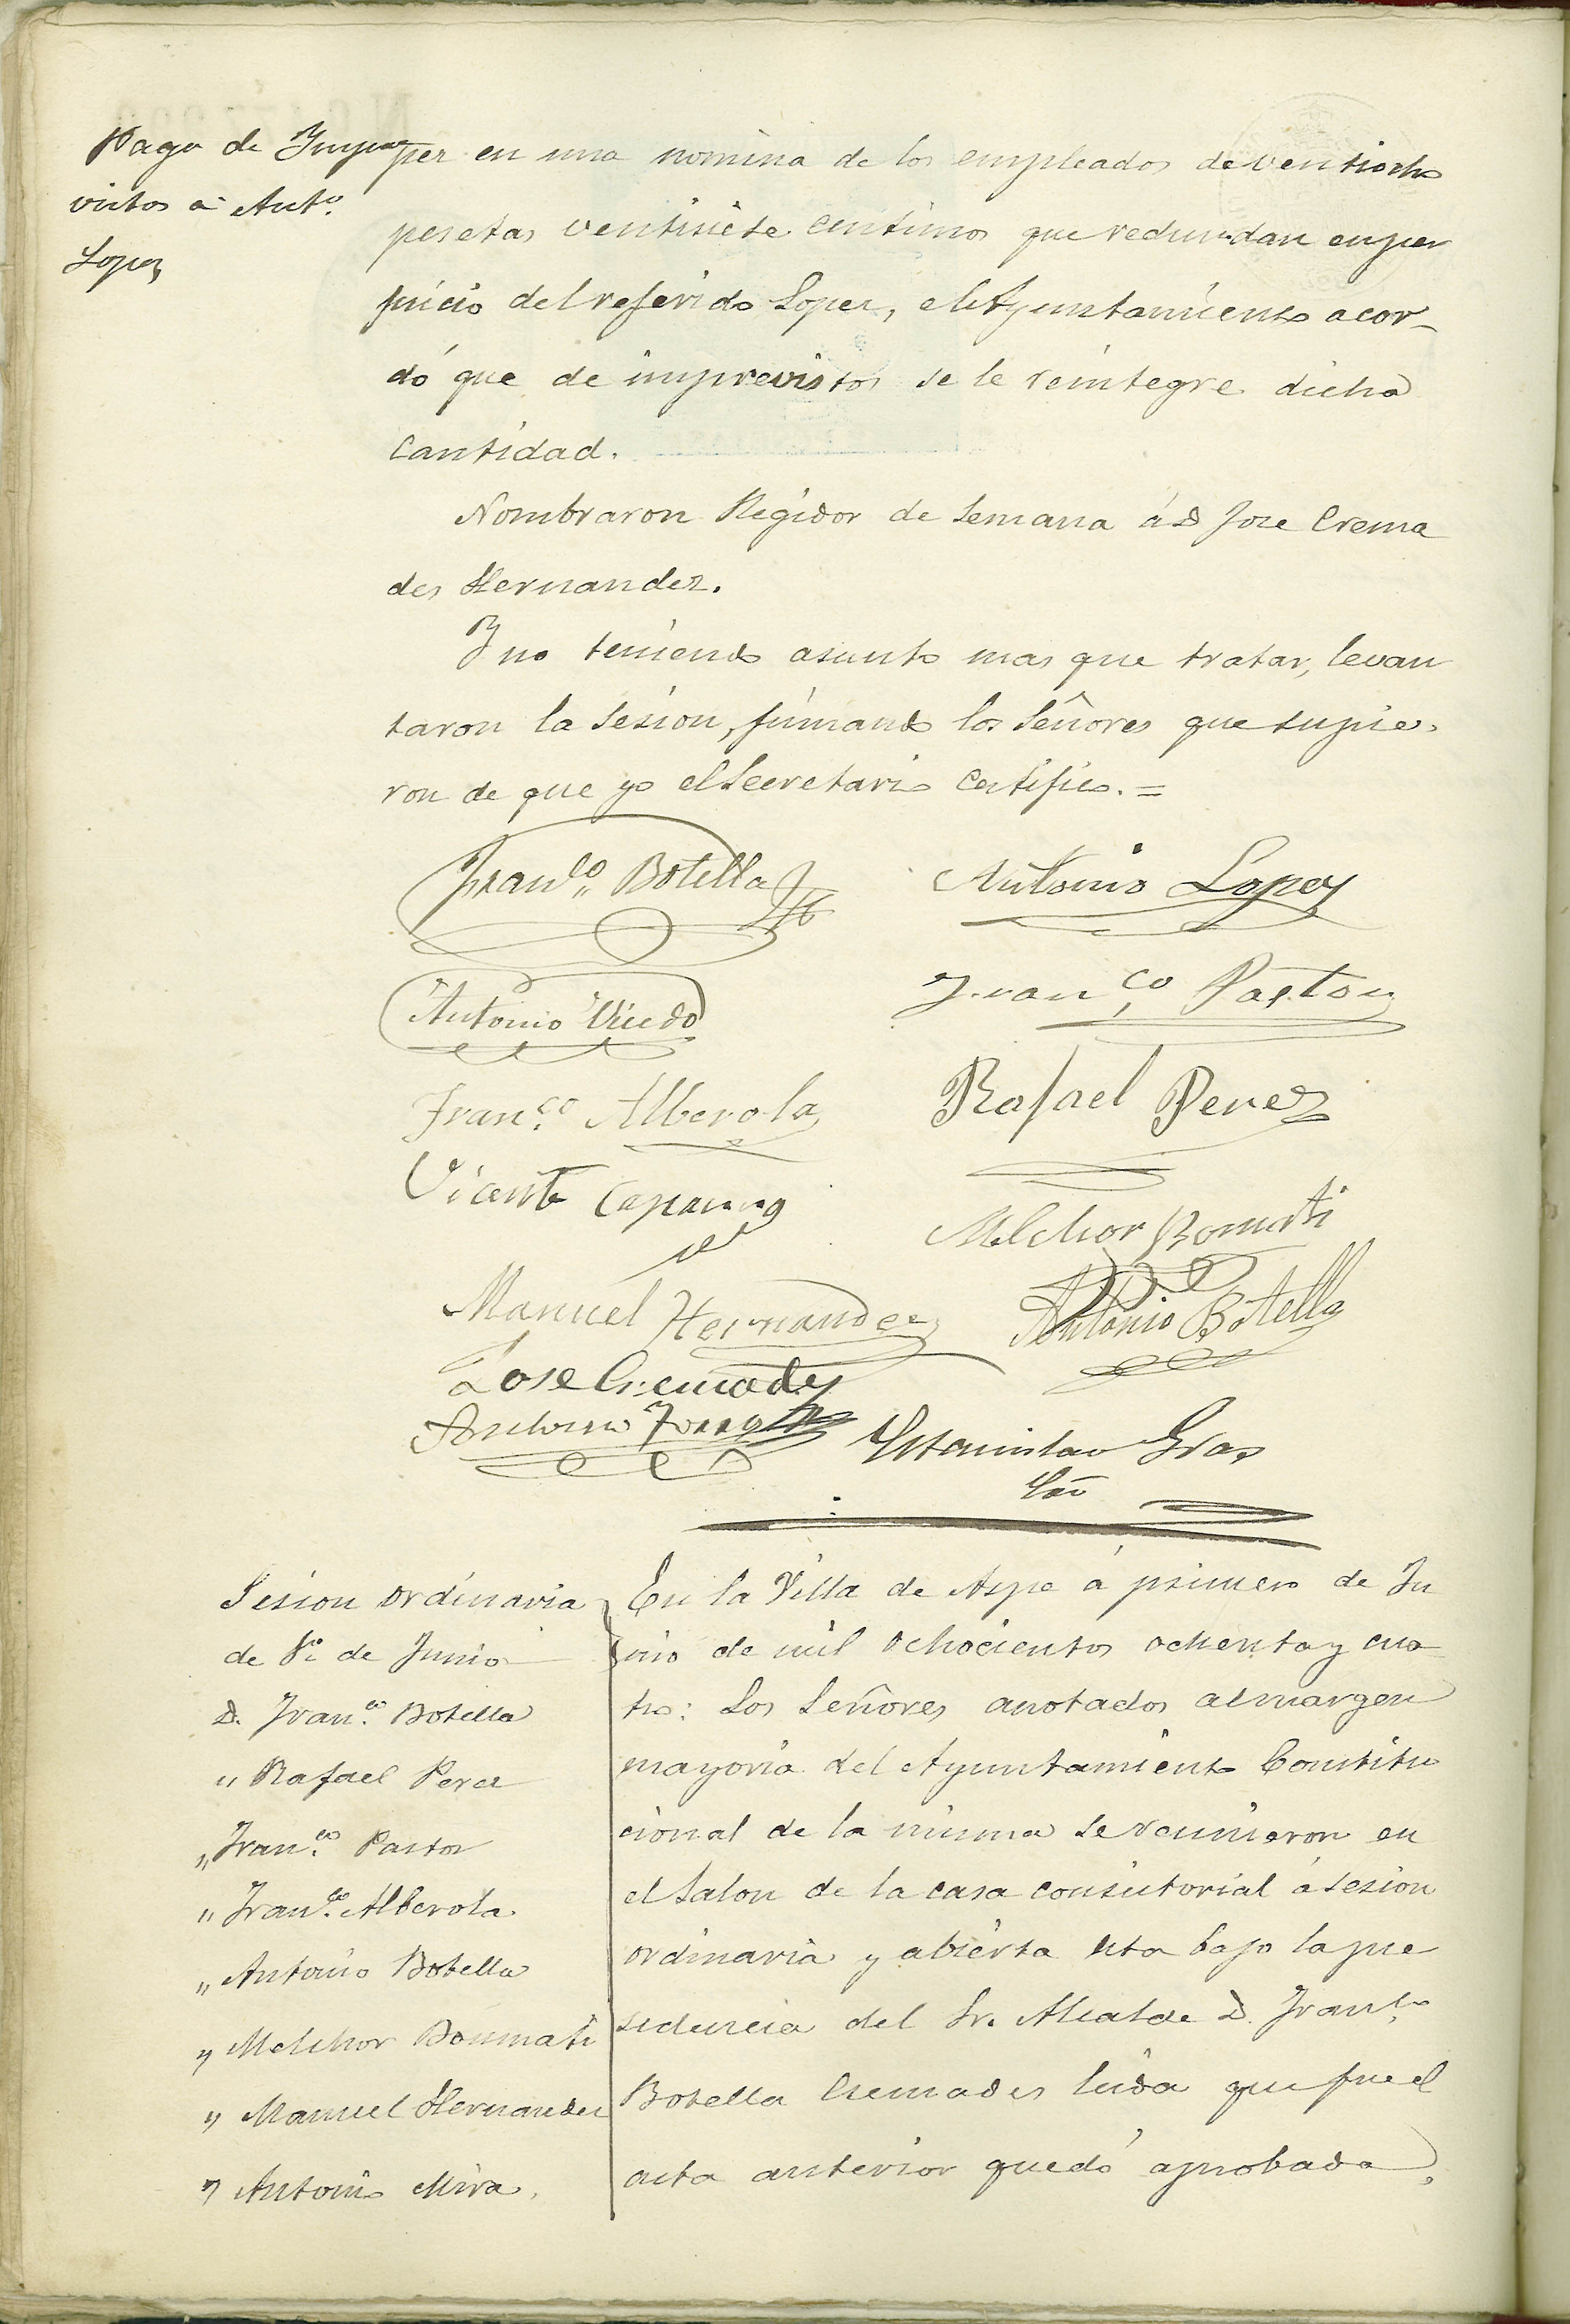 Pago de Impre
vistos a Antº.
Lopez
per en una nomina de los empleados de ventiocho
pesetas ventisiete centimos que redundan en per
juicio del referido Lopez, el Ayuntamiento acor-
dó que de imprevistos se le reintegre dicha
cantidad.
Nombraron Regidor de Semana á D Jose Crema
des Hernandez.
Y no teniendo asunto mas que tratar, levan
taron la Sesion, firmando los Señores que supie-
ron de que yo el Secretario certifico. =
Franco. Botella
Antonio Lopez
Antonio Vicedo
Franco Pastor
Franco. Alberola
Rafael Perez
Vicente Caparros
Melchor Bomati
Manuel Hernandez
Antonio Botella
Jose Cremades
Antonio
Estanislao Gras
Srio
Sesion ordinaria
de 1º de Junio
D. Franco. Botella
" Rafael Perez
" Franco. Pastor
" Franco. Alberola
" Antonio Botella
" Melchor Bonmati
" Manuel Hernandez
" Antonio Mira.
En la Villa de Aspe á primero de Ju
nio de mil ochocientos ochenta y cua
tro: Los Señores anotados al margen
mayoria del Ayuntamiento Constitu
cional de la misma se reunieron en
el Salon de la casa consistorial á sesion
ordinaria y abierta esta bajo la pre
sidencia del Sr. Alcalde D. Franco.
Botella Cremades leida que fue el
acta anterior quedó aprobada,